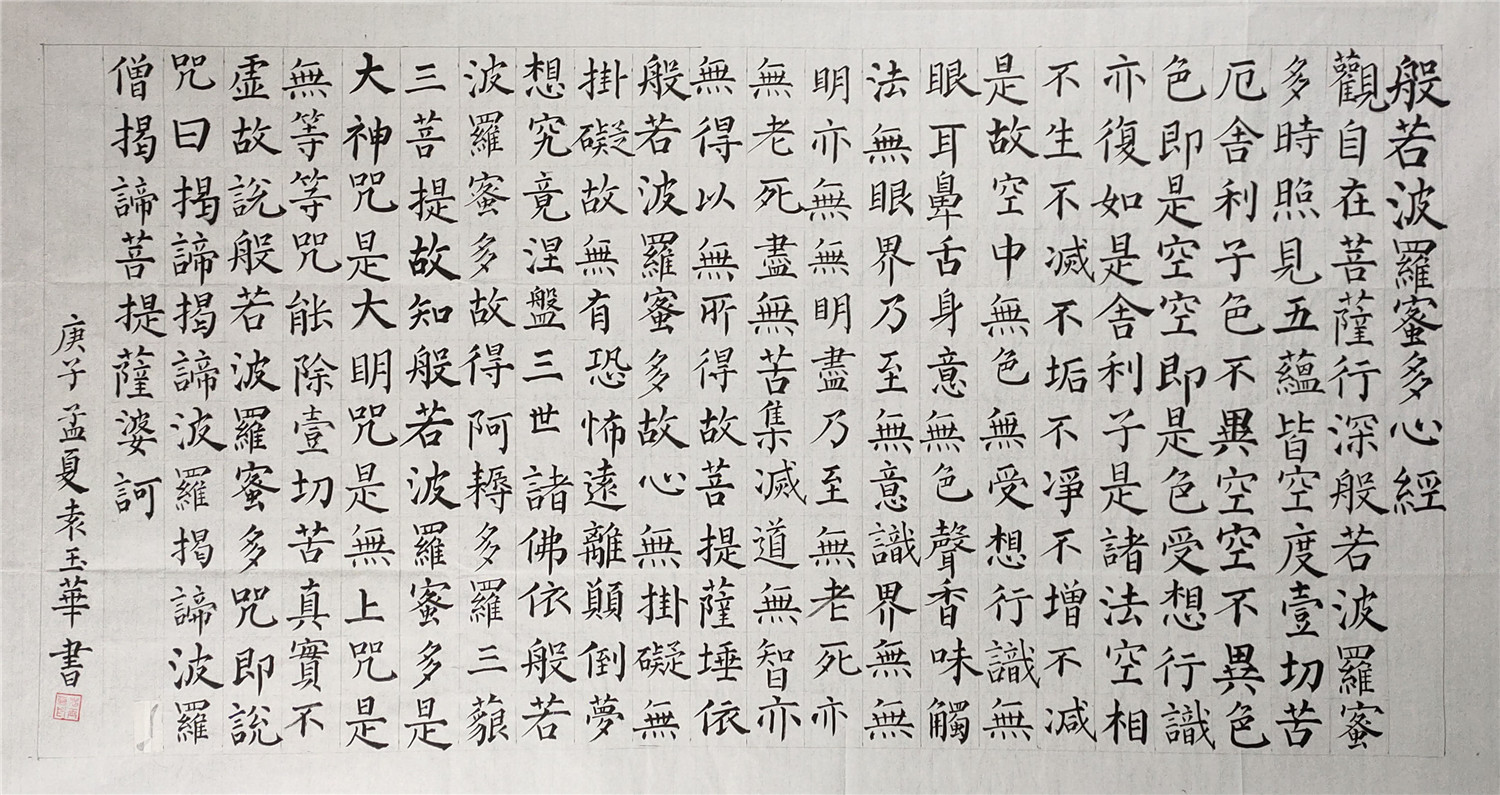 般若波羅蜜多心經
觀自在菩薩行深般若波羅蜜
多時照見五蘊皆空度壹切苦
厄舍利子色不異空空不異色
色即是空空即是色受想行識
亦復如是舍利子是諸法空相
不生不滅不垢不淨不增不減
是故空中無色無受想行識無
眼耳鼻舌身意無色聲香味觸
法無眼界乃至無意識界無無
明亦無無明盡乃至無老死亦
無老死盡無苦集滅道無智亦
無得以無所得故菩提薩埵依
般若波羅蜜多故心無掛礙無
掛礙故無有恐怖遠離顛倒夢
想究竟涅盤三世諸佛依般若
波羅蜜多故得阿耨多羅三藐
三菩提故知般若波羅蜜多是
大神咒是大明咒是無上咒是
無等等咒能除壹切苦真實不
虛故說般若波羅蜜多咒即說
咒曰揭諦揭諦波羅揭諦波羅
僧揭諦菩提薩婆訶
庚子孟夏袁玉華書